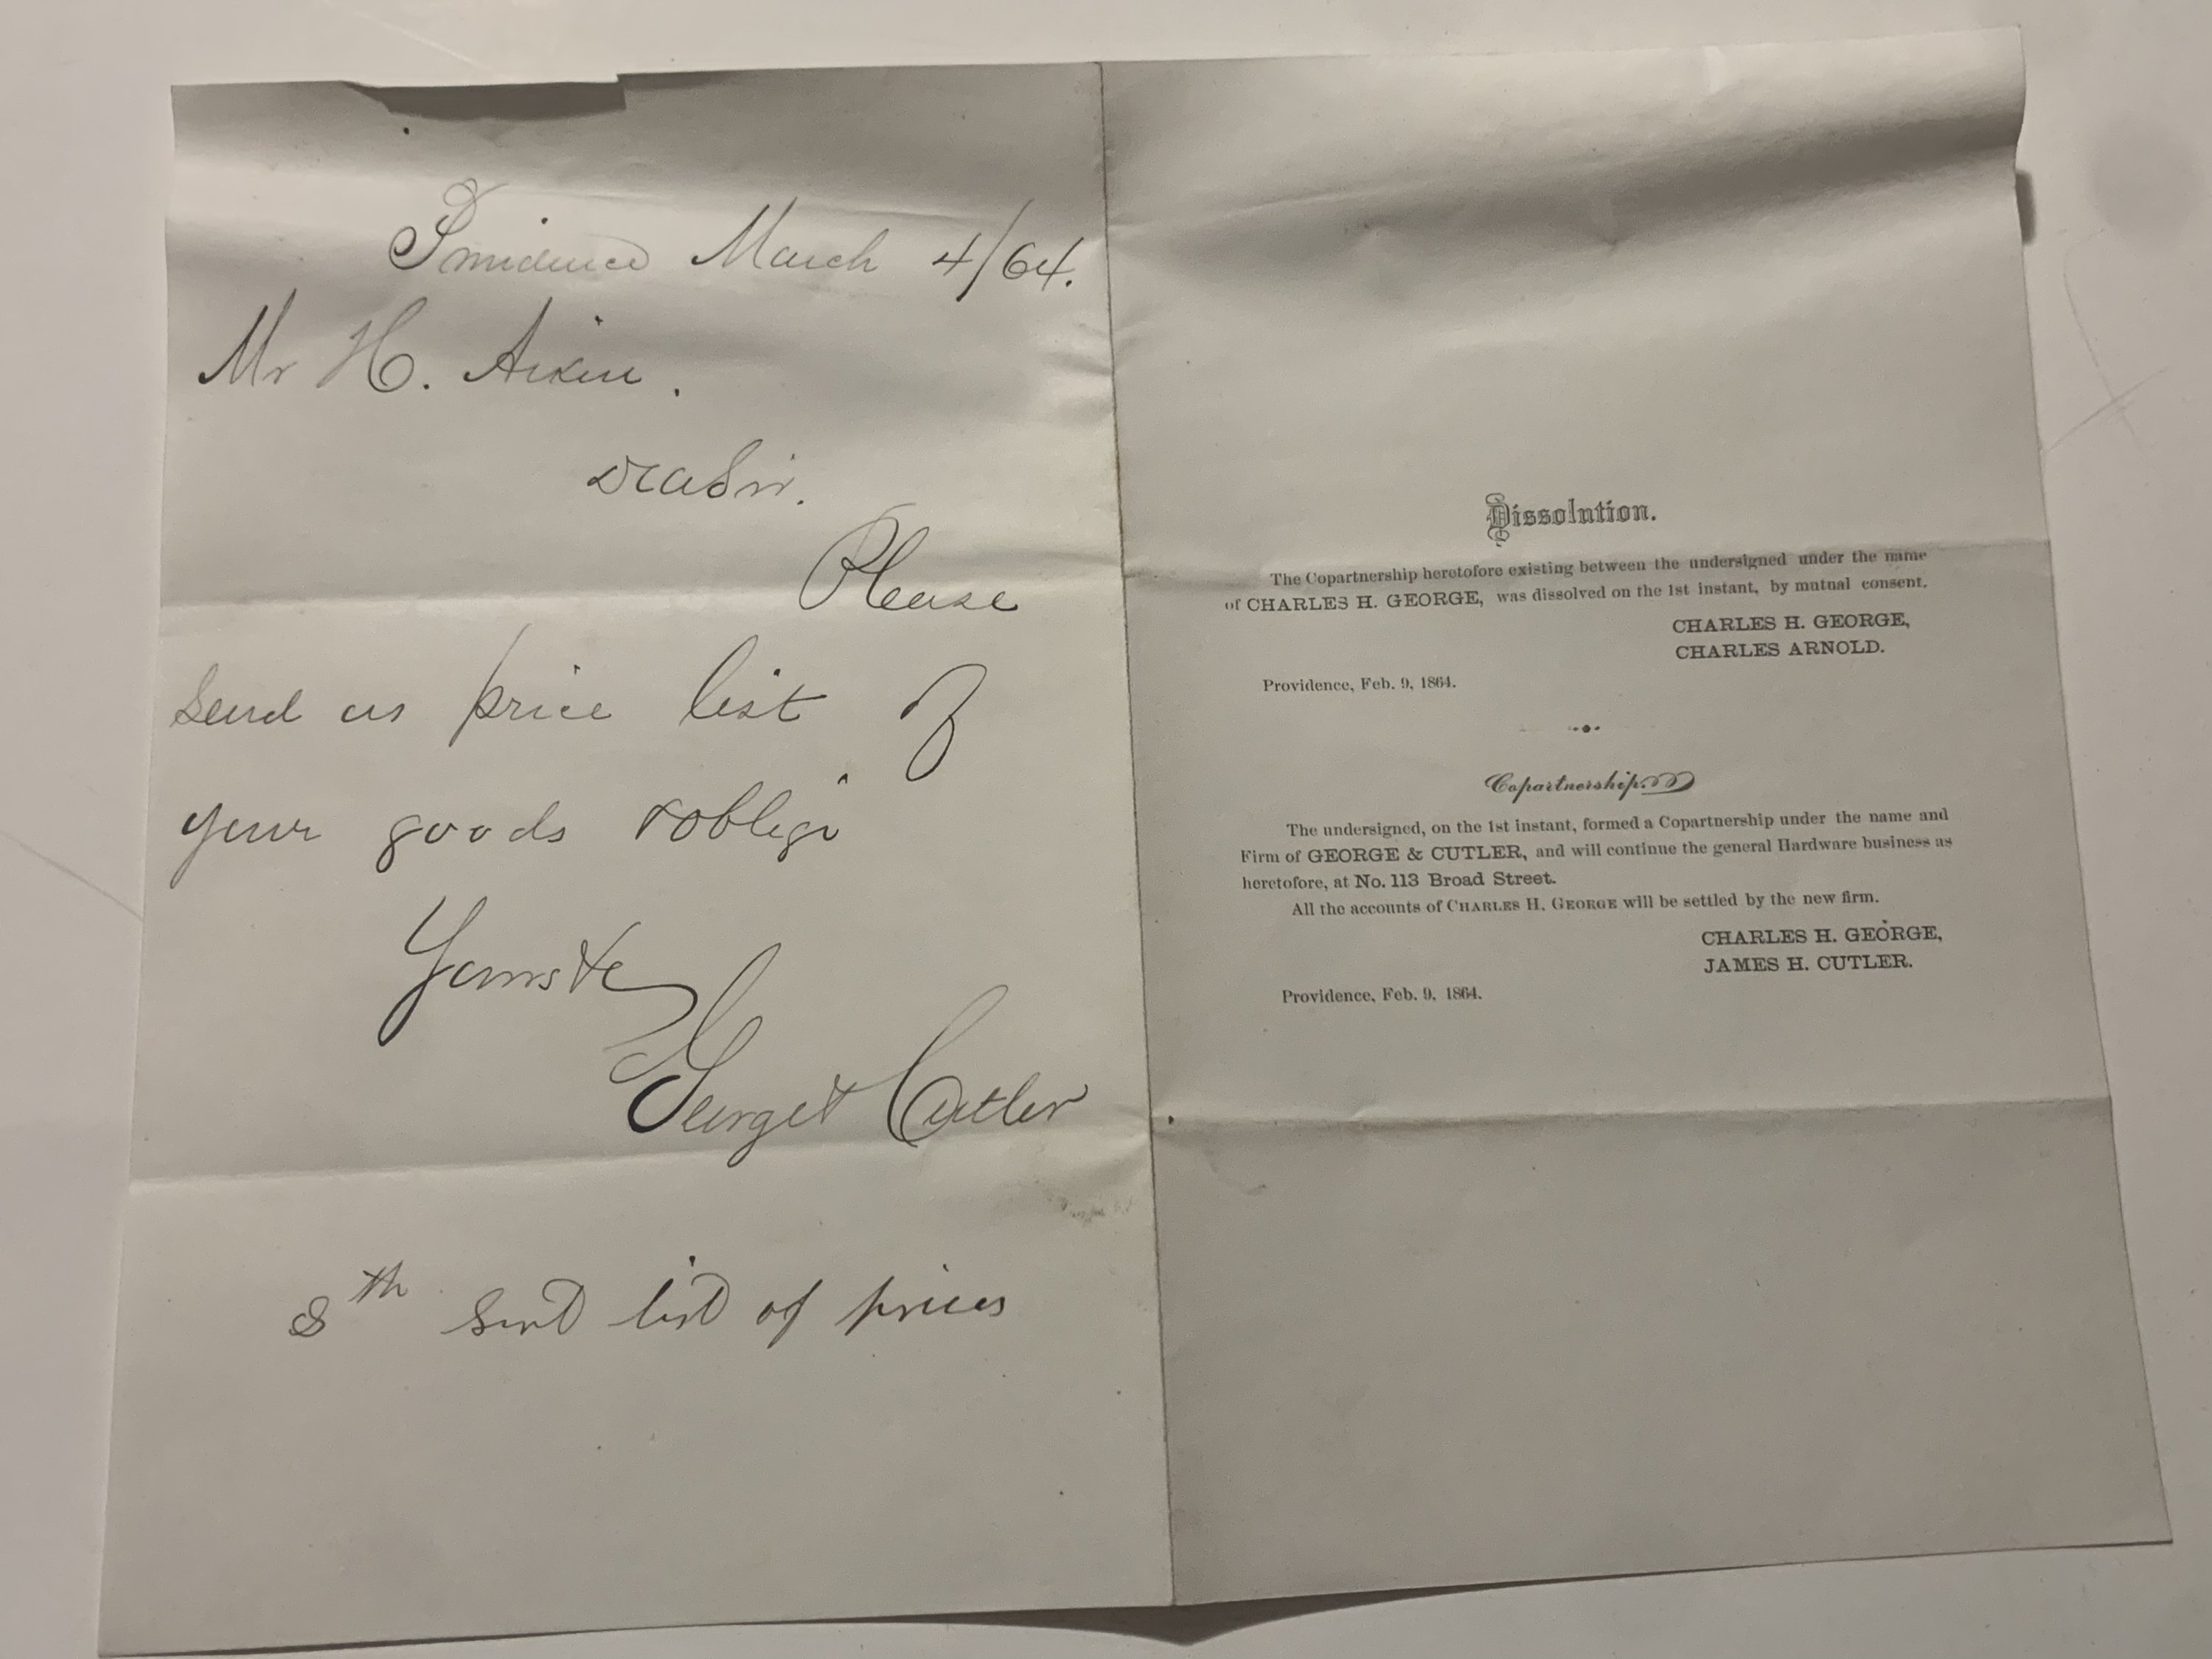 Providence March 4/64.
Mr H. Aiken.
Dear Sir.
Please
send us price list of
your goods & oblige
Yours &c
George & Cutler
8th Sent list of prices
Dissolution.
The Copartnership heretofore existing between the undersigned under the name
of CHARLES H. GEORGE, was dissolved on the 1st instant, by mutual consent.
CHARLES H. GEORGE,
CHARLES ARNOLD.
Providence, Feb. 9, 1864.
Copartnership.
The undersigned, on the 1st instant, formed a Copartnership under the name and
Firm of GEORGE & CUTLER, and will continue the general Hardware business as
heretofore, at No. 113 Broad Street.
All the accounts of CHARLES H. GEORGE will be settled by the new firm.
CHARLES H. GEORGE,
JAMES H. CUTLER.
Providence, Feb. 9, 1864.